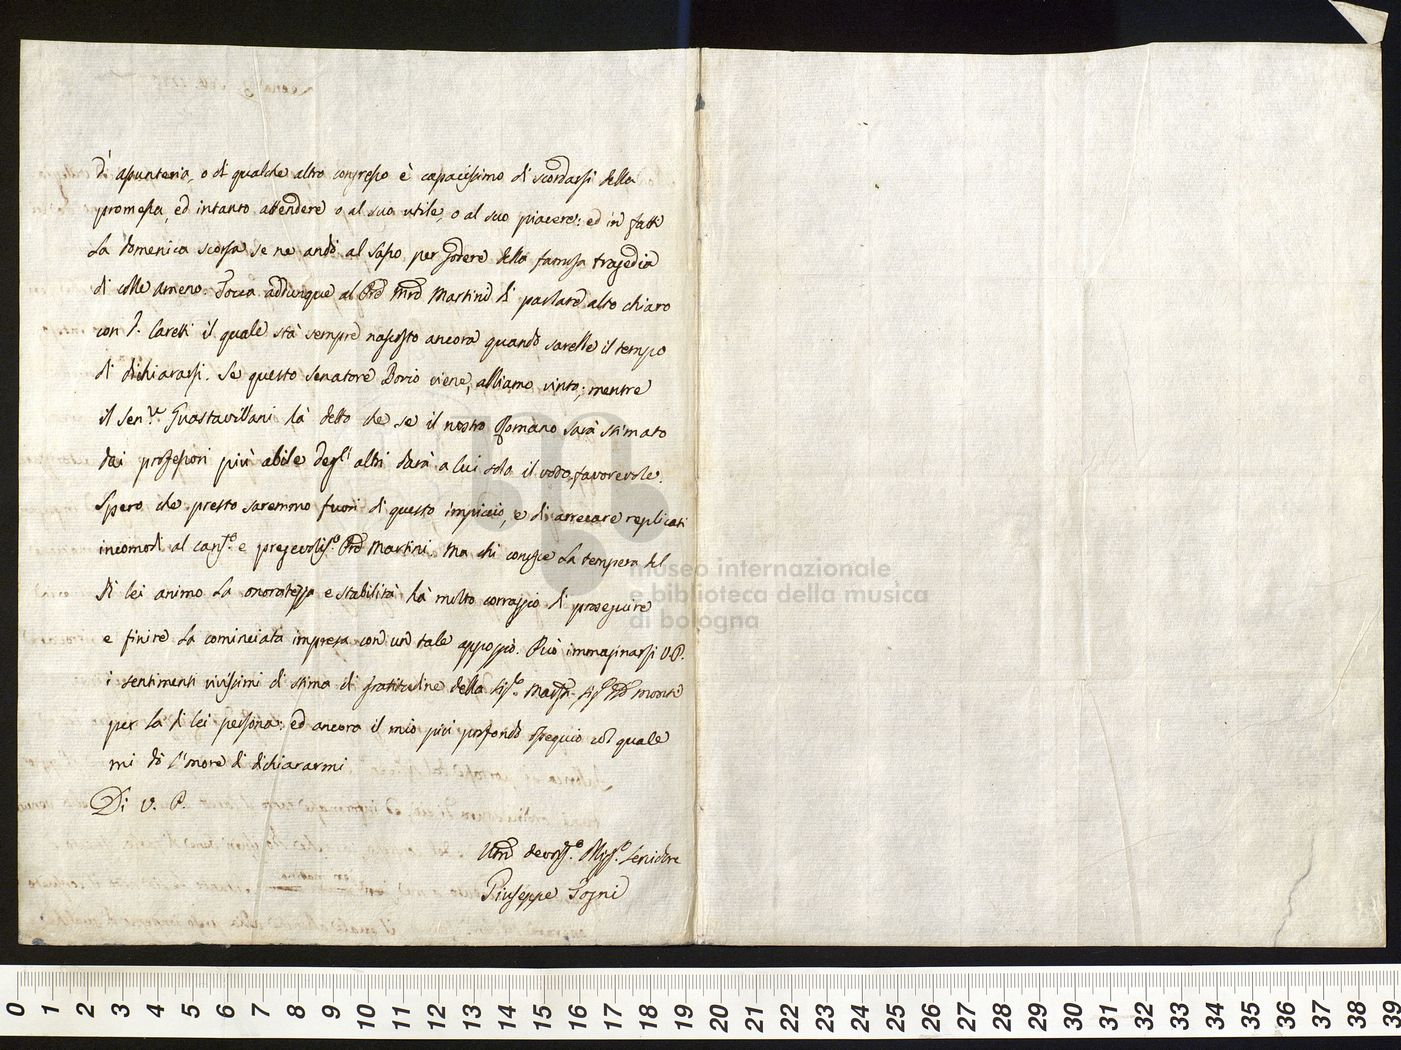 d'apunteria, o di qualche altro congresso è capacissimo di scordarsi della
promessa, ed intanto attendere o al suo utile, o al suo piacere: ed in fatti
La domenica scorsa se ne andò al Sasso per godere della famosa tragedia
di colle Ameno. Tocca addunque al Prē Mrō Martini di parlare alto chiaro
con Caretti il quale stà sempre nascosto ancora quando sarebbe il tempo
di dichiararsi. Se questo senatore Bovio viene, abbiamo vinto; mentre
il Sen.re Guastavillani hà detto che se il nostro Romano sarà stimato
dai professori più abile degl'altri darà a lui solo il vodo favorevole.
Spero che presto saremmo fuori di questo impiccio, e di arrecare replicati
incomodi al e Prē Martini. Ma chi conosce La tempera del
di lei animo La onoratezza e stabilità hà molto corraggio di proseguire
e finire La cominciata impresa con un tale appoggio. Può immaginarsi V.P.
i sentimenti vivissimi di stima di gratitudine della
per la di lei persona: ed ancora il mio più profondo ossequio col quale
mi dò l'onore di dichiararmi
Di V. P.
Servidore
Giuseppe Sogni
museo internazionale
e biblioteca della musica
di bologna
0 1 2 3 4 5 6 7 8 9 10 11 12 13 14 15 16 17 18 19 20 21 22 23 24 25 26 27 28 29 30 31 32 33 34 35 36 37 38 39